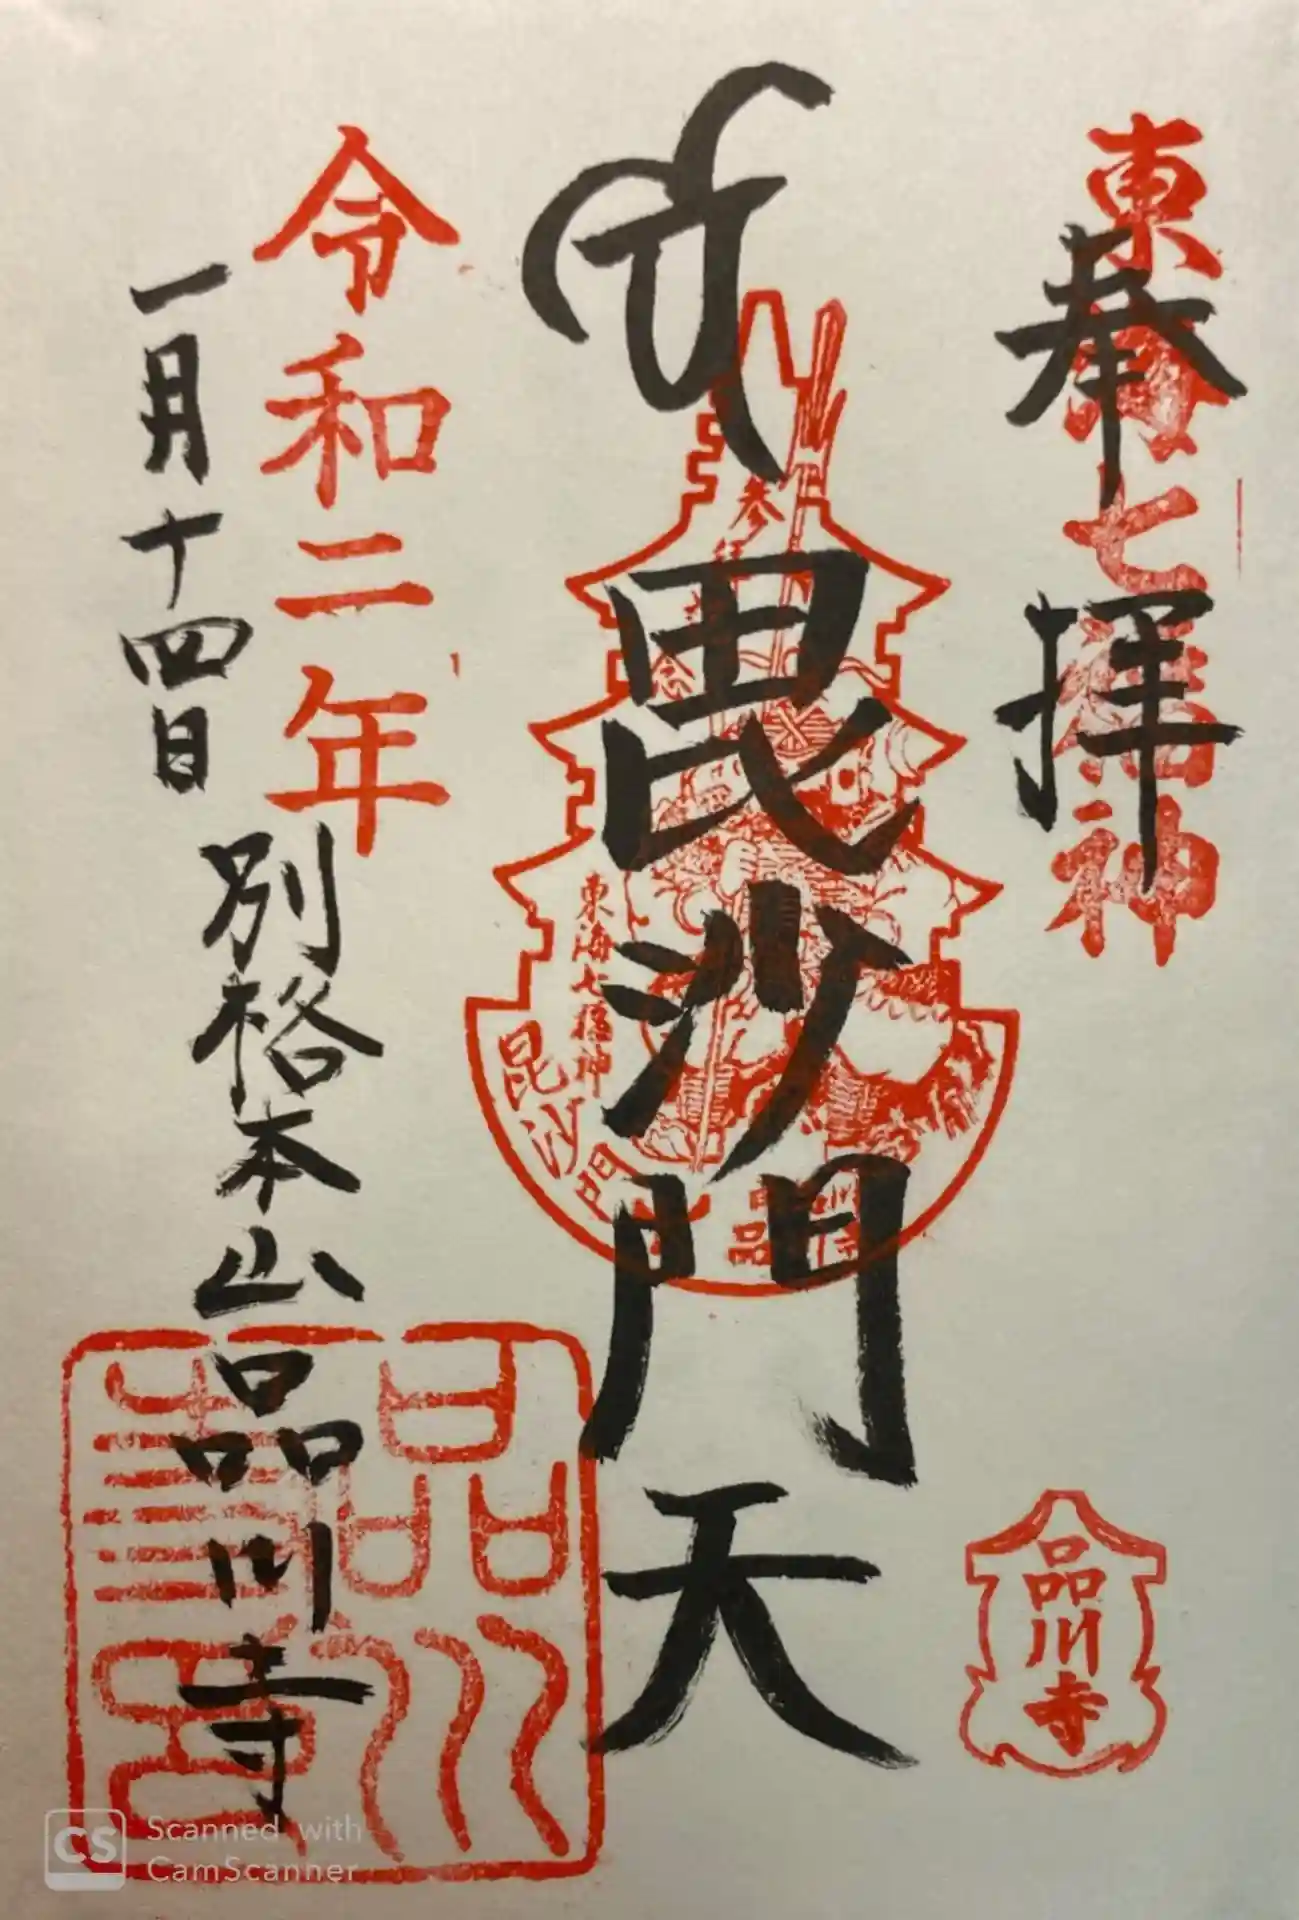 東海七福神
奉拝
毘沙門天
参
東海七福神
毘沙門
品
令和二年
一月十四日
別格本山品川寺
品川寺
Scanned with
CamScanner